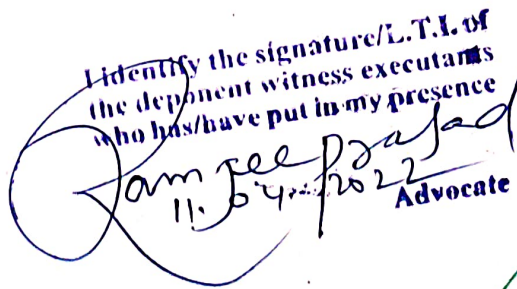 I identify the signature/L.T.I. of
the deponent witness executants
who has/have put in my presence
Ramjee Prasad
11.04.2022
Advocate